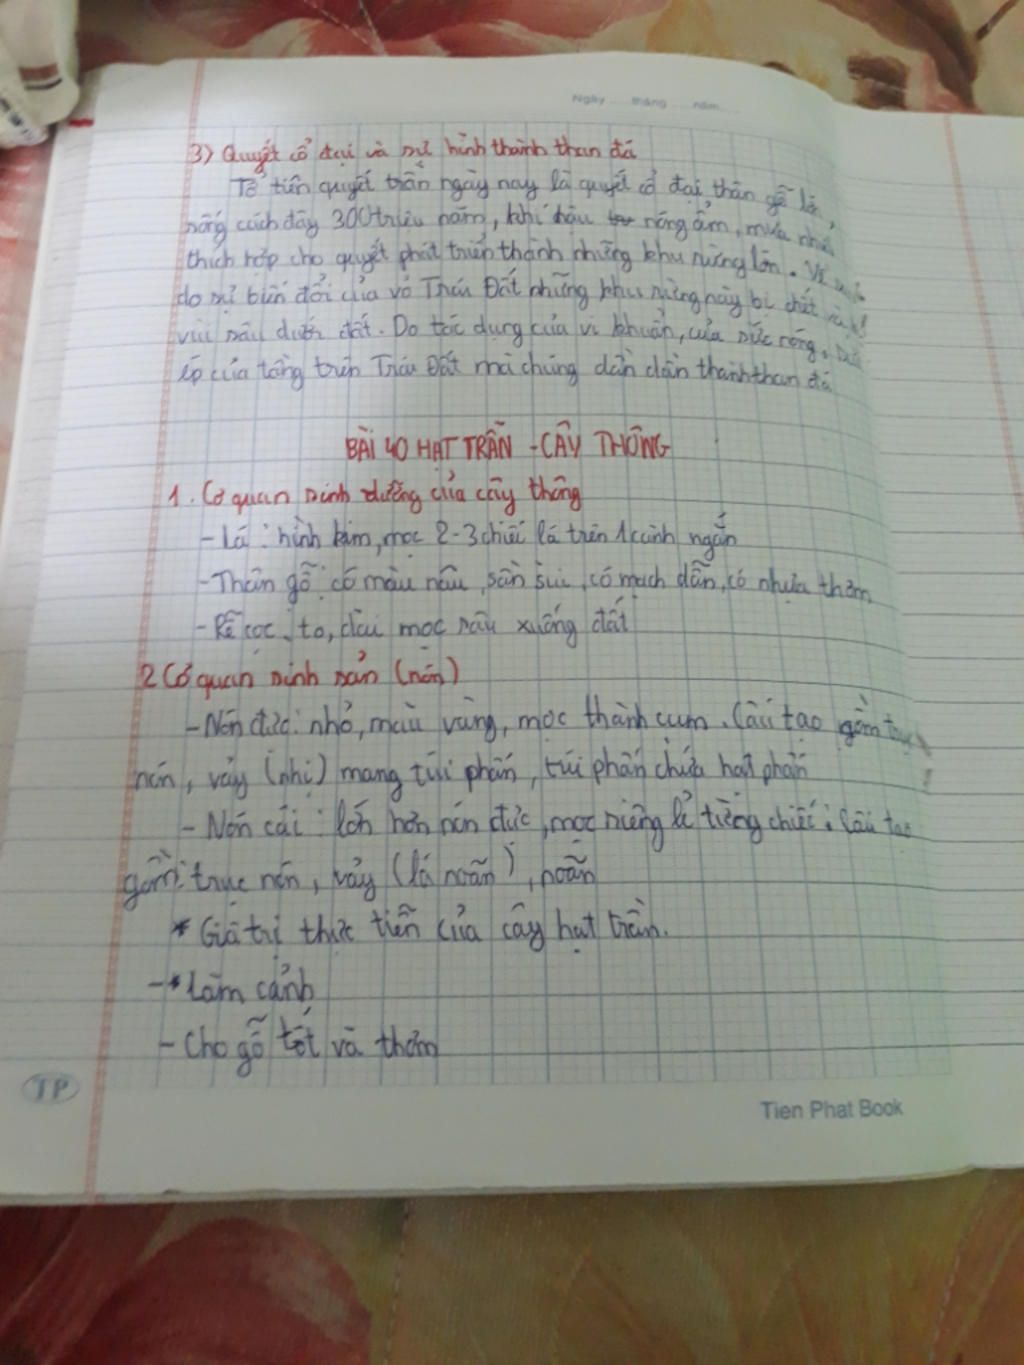 Ngày ..... tháng ..... năm.....
3) Quyết cổ đại và sự hình thành than đá
Tổ tiên quyết trần ngày nay là quyết cổ đại, thân gỗ lớn,
sống cách đây 300 triệu năm, khí hậu nóng ẩm, mưa nhiều
thích hợp cho quyết phát triển thành những khu rừng lớn. Về sau
do sự biến đổi của vỏ Trái Đất những khu rừng này bị chết và bị
vùi sâu dưới đất. Do tác dụng của vi khuẩn, của sức nóng, sức
ép của tầng trên Trái Đất mà chúng dần dần thành than đá
BÀI 40 HẠT TRẦN - CÂY THÔNG
1. Cơ quan sinh dưỡng của cây thông
- Lá: hình kim, mọc 2-3 chiếc lá trên 1 cành ngắn
- Thân gỗ: có màu nâu, sần sùi, có mạch dẫn, có nhựa thơm
- Rễ cọc, to, dài mọc sâu xuống đất
2 Cơ quan sinh sản (nón)
- Nón đực: nhỏ, màu vàng, mọc thành cụm. Cấu tạo gồm trục
nón, vảy (nhị) mang túi phấn, túi phấn chứa hạt phấn
- Nón cái: lớn hơn nón đực, mọc riêng lẻ từng chiếc: Cấu tạo
gồm: trục nón, vảy (lá noãn), noãn
* Giá trị thực tiễn của cây hạt trần.
-* Làm cảnh
- Cho gỗ tốt và thơm
TP
Tien Phat Book